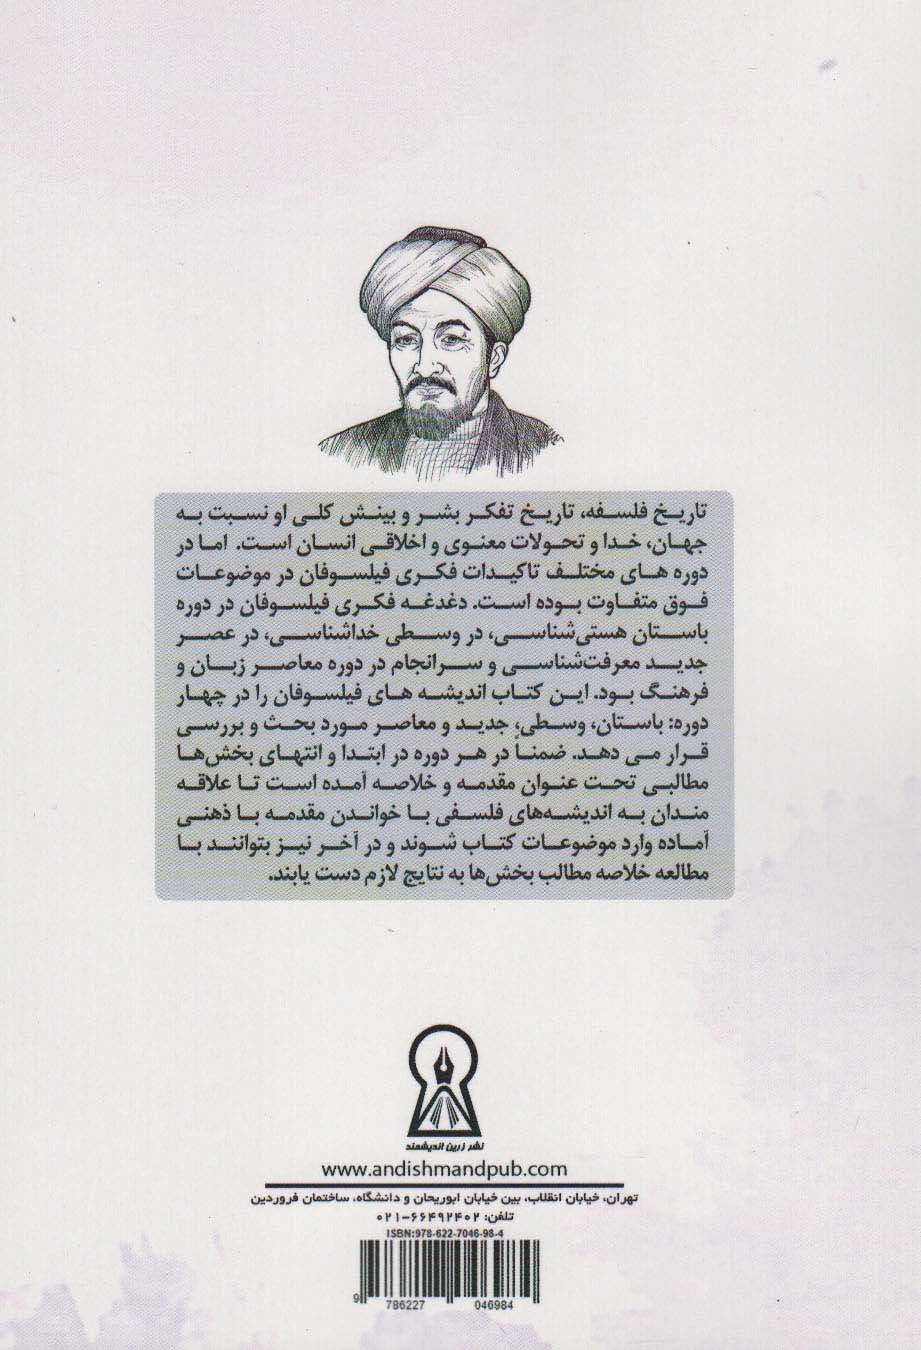 تاریخ فلسفه، تاریخ تفکر بشر و بینش کلی او نسبت به
جهان، خدا و تحولات معنوی و اخلاقی انسان است. اما در
دوره های مختلف تاکیدات فکری فیلسوفان در موضوعات
فوق متفاوت بوده است. دغدغه فکری فیلسوفان در دوره
باستان هستی‌شناسی، در وسطی خداشناسی، در عصر
جدید معرفت‌شناسی و سرانجام در دوره معاصر زبان و
فرهنگ بود. این کتاب اندیشه های فیلسوفان را در چهار
دوره: باستان، وسطی، جدید و معاصر مورد بحث و بررسی
قرار می دهد. ضمناً در هر دوره در ابتدا و انتهای بخش‌ها
مطالبی تحت عنوان مقدمه و خلاصه آمده است تا علاقه
مندان به اندیشه‌های فلسفی با خواندن مقدمه با ذهنی
آماده وارد موضوعات کتاب شوند و در آخر نیز بتوانند با
مطالعه خلاصه مطالب بخش‌ها به نتایج لازم دست یابند.
نشر زرین اندیشمند
www.andishmandpub.com
تهران، خیابان انقلاب، بین خیابان ابوریحان و دانشگاه، ساختمان فروردین
تلفن: ۰۲۱-۶۶۴۹۲۴۰۲
ISBN:978-622-7046-98-4
9 786227 046984